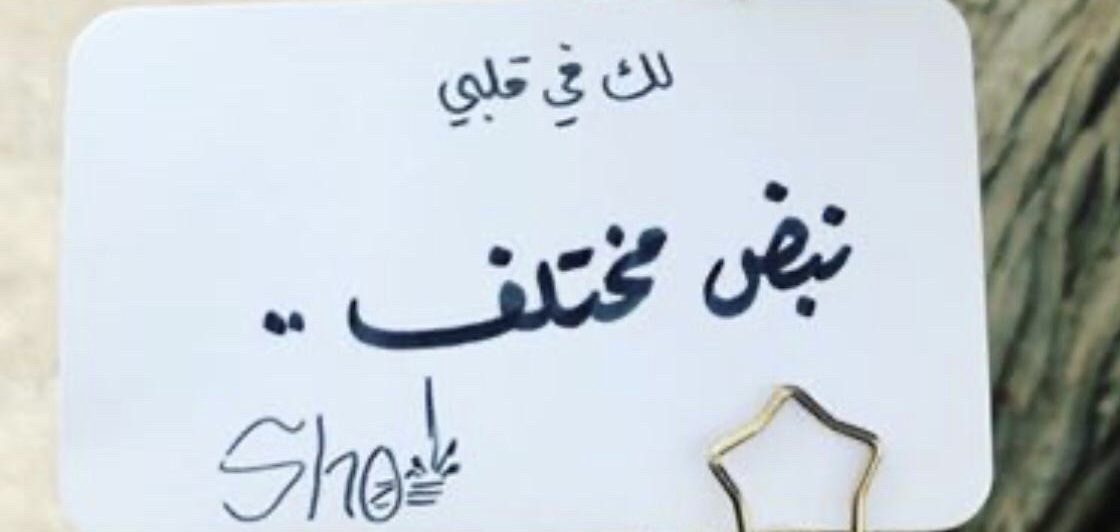 لك في قلبي
نبض مختلف ..